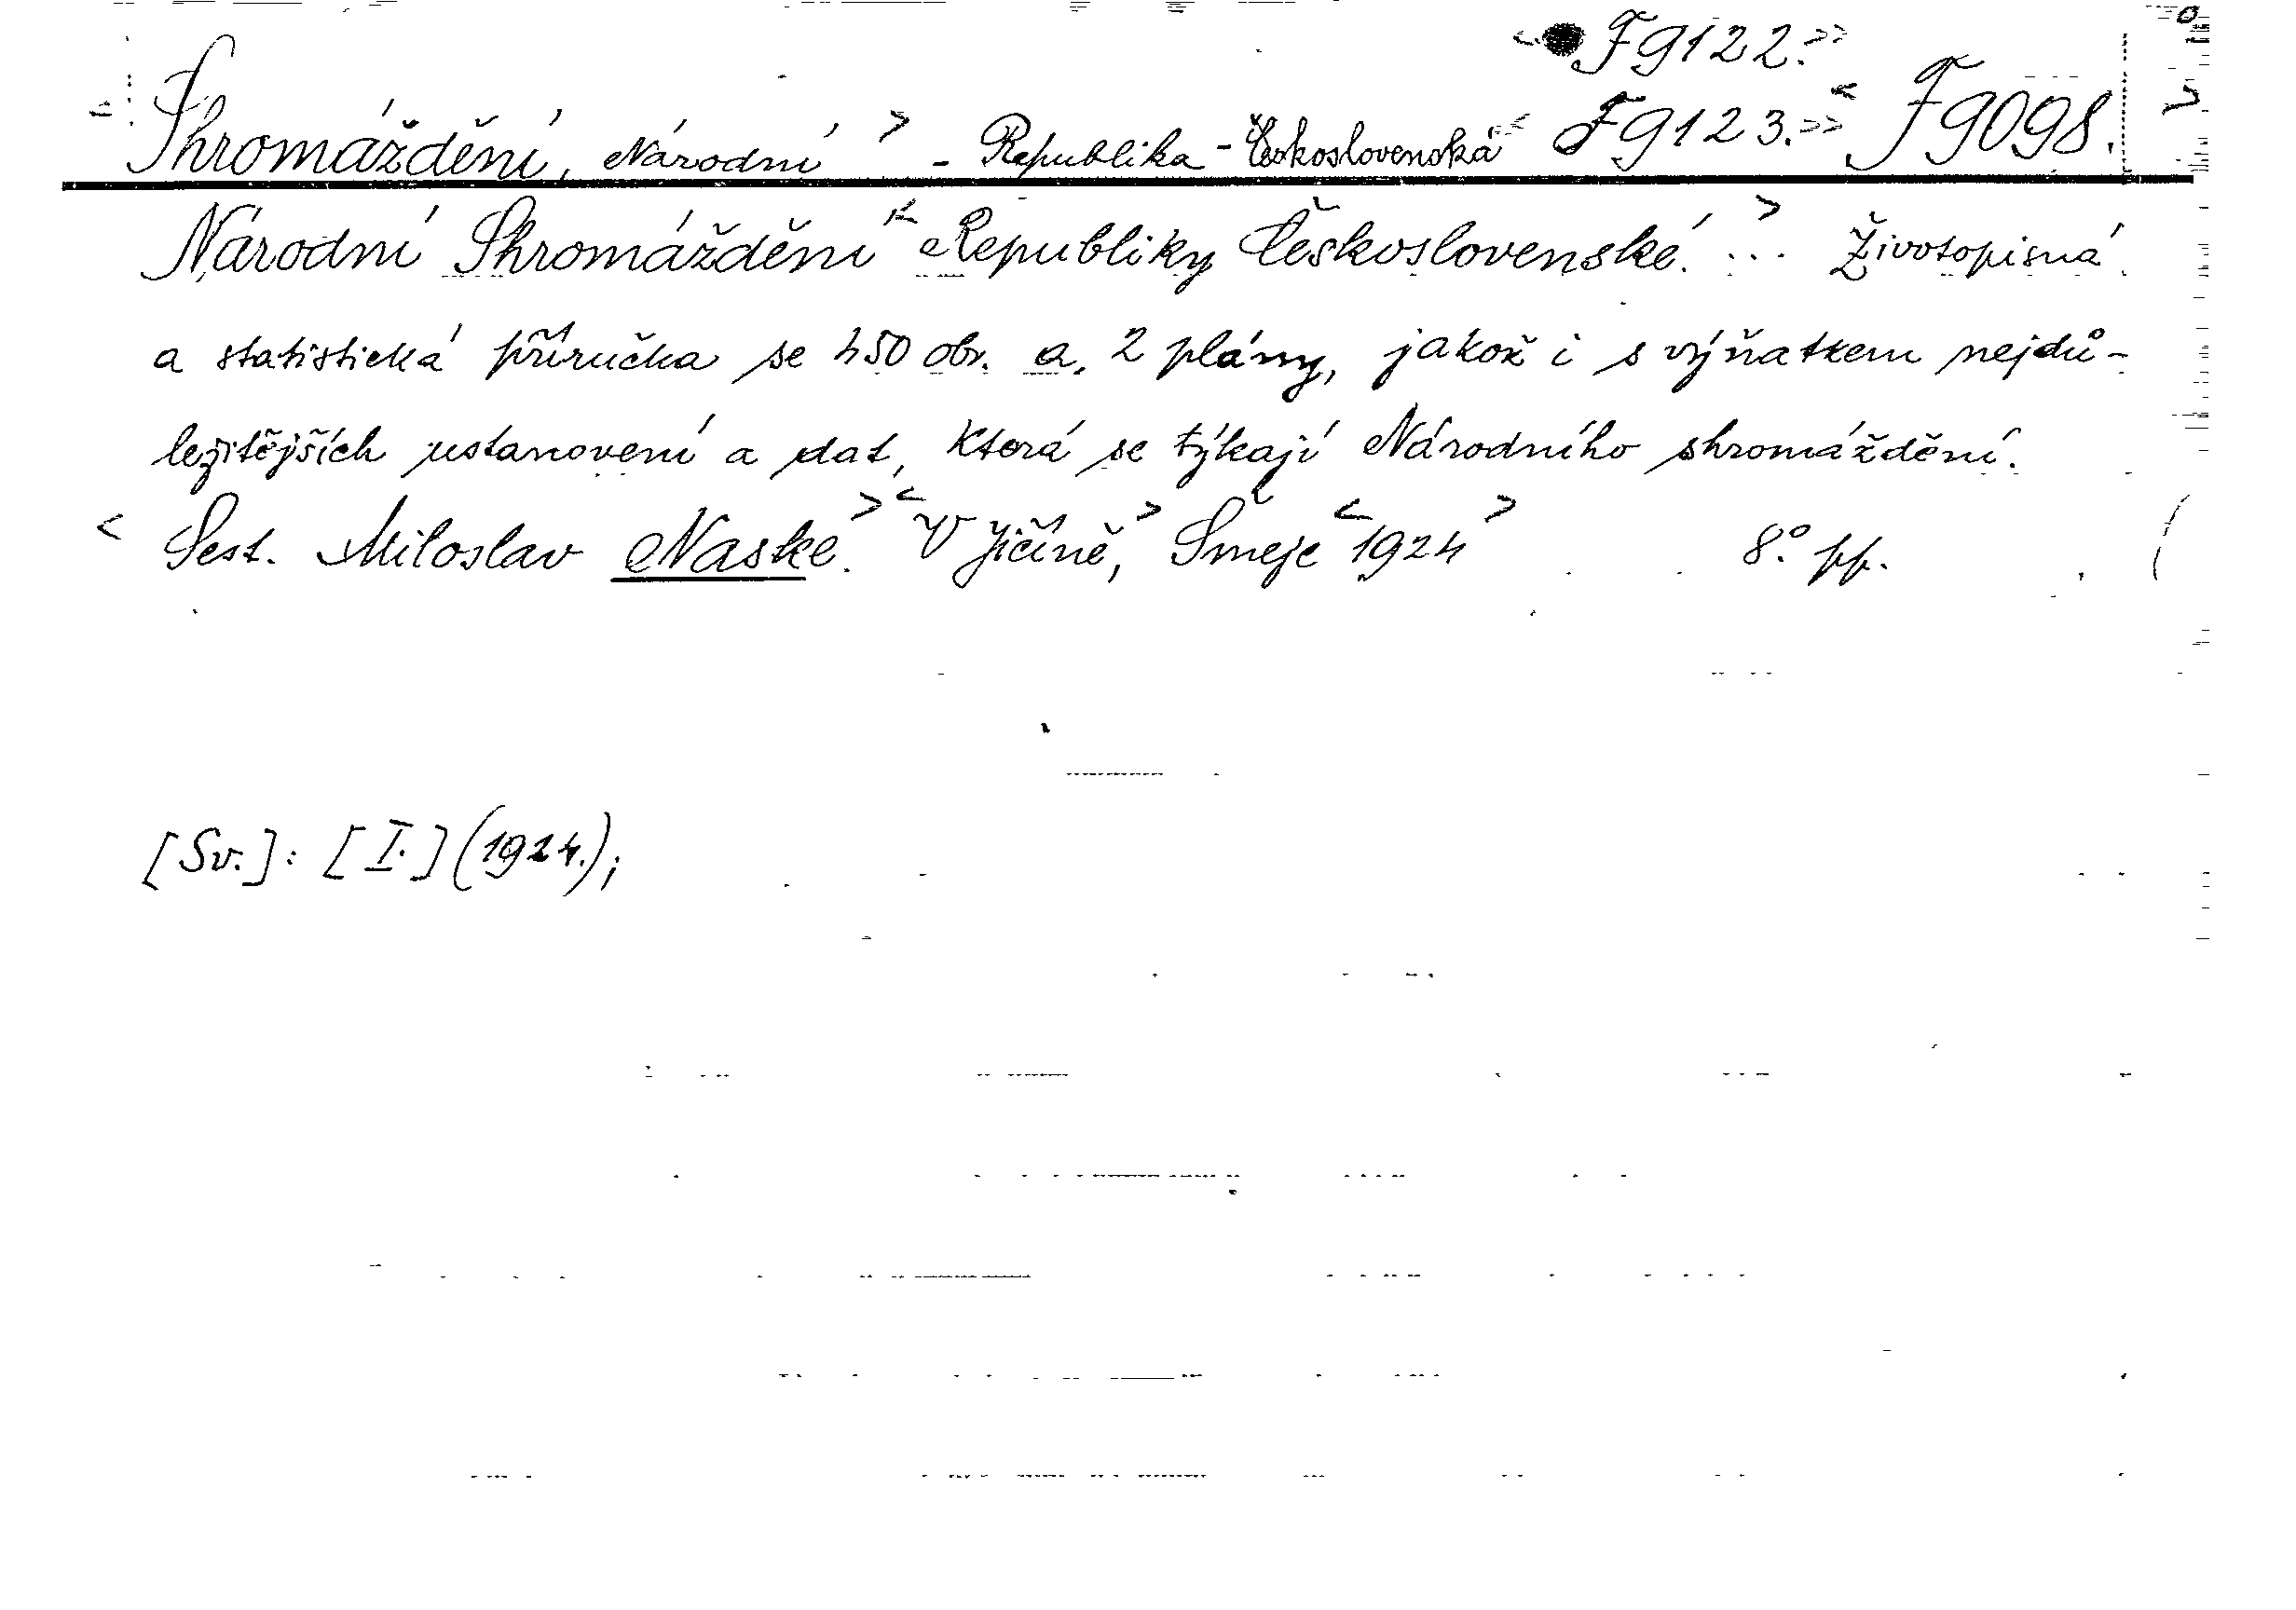 < F 9122.>>
Shromáždění, Národní > - Republika - Československá << F 9123.>> < F 9098. >
Národní Shromáždění < Republiky Československé. ... > Životopisná
a statistická příručka se 450 obr. a 2 plány, jakož i s výňatkem nejdů-
ležitějších ustanovení a dat, která se týkají Národního shromáždění.
< Sest. Miloslav Naske. > < V Jičíně, > Šmejc < 1924 > 8.° pp.
[Sv.]: [I.] (1924.);